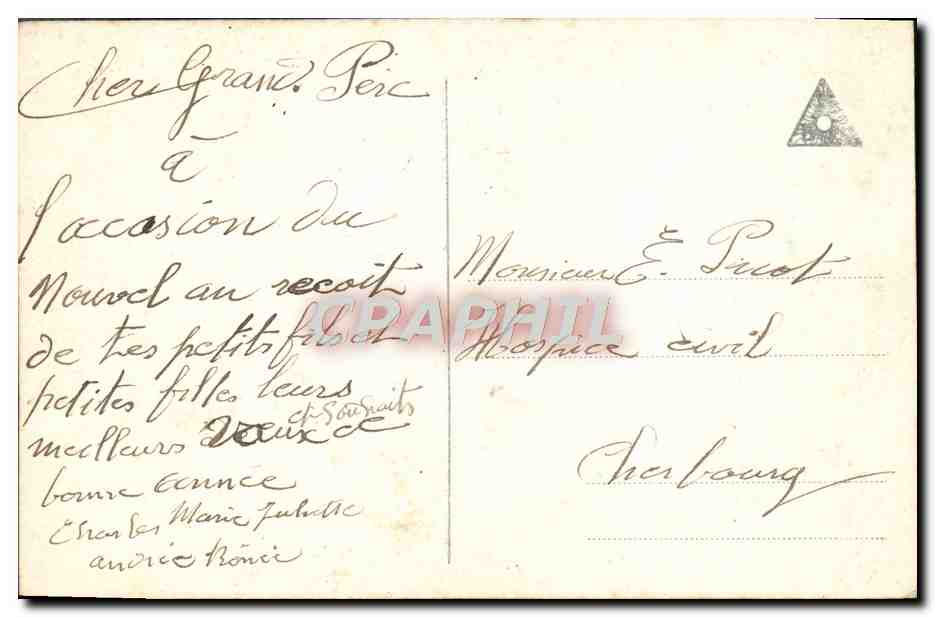 Cher Grand Père
à
l'occasion du
Nouvel an recoit
de tes petits fils et
petites filles leurs
et Souhaits
meilleurs Vœux de
bonne année
Charles Marie Juliette
andrée Rénée
Monsieur E. Picot
Hospice civil
Cherbourg
CPAPHIL